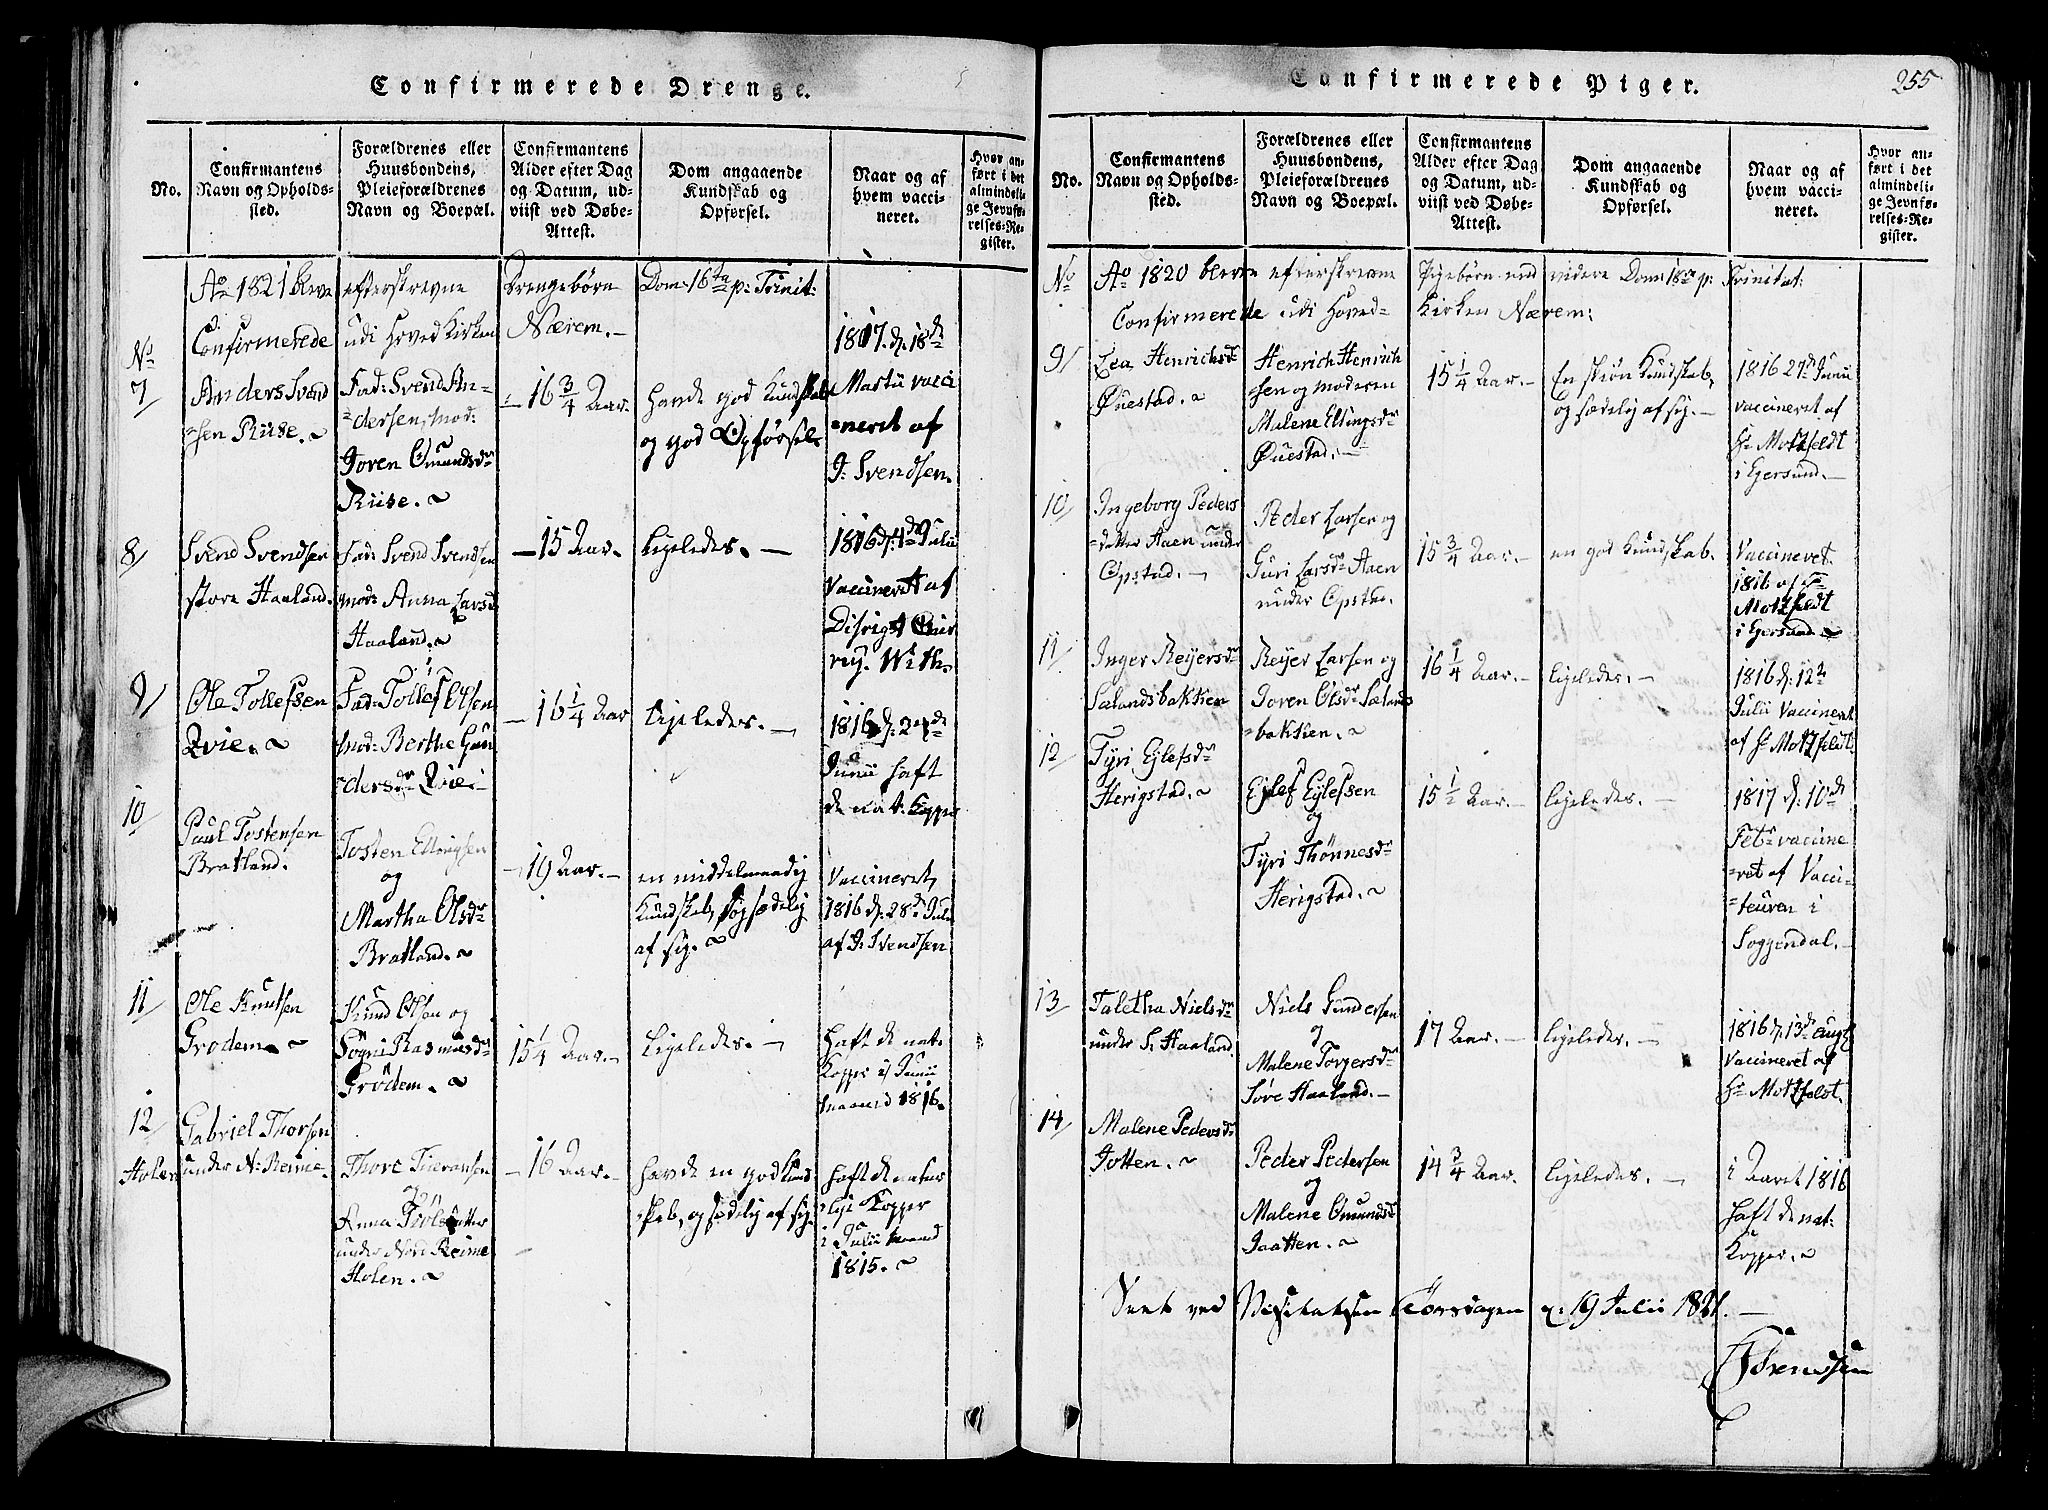 Confirmerede Drenge.
No.
Confirmantens
Navn og Opholds-
sted.
Forældrenes eller
Huusbondens,
Pleieforældrenes
Navn og Boepæl.
Confirmantens
Alder efter Dag
og Datum, ud-
viist ved Døbe-
Attest.
Dom angaaende
Kundskab og
Opførsel.
Naar og af
hvem vacci-
neret.
Hvor an-
ført i det
almindeli-
ge Jevnfø-
relses-Re-
gister.
Ao 1821 bleve efterskrevne Drengebørn Dom: 16ta p: Trinit:
Confirmerede udi Hoved Kirken Nærem.
No
7
Anders Svend
=sen Riise.
Fad: Svend An-
=dersen, mod:
Joren Omundsdr
Riise.
16 3/4 Aar.
Havde god Kundskab
og god Opførsel.
1817. d. 18de
Martii vacci
=neret af
J: Svendsen.
8/
Svend Svendsen
store Haaland.
Fad: Svend Svendsen
mod: Anna Larsdr
Haaland.
15 Aar.
Ligeledes.
1816 d: 4de Julii
Vaccineret af
With.
9/
Ole Tollefsen
Qvie.
Fad: Tollef Olsen
mod: Berthe Gun
=dersdr Qvie.
16 1/4 Aar
Ligeledes.
1816 d: 24de
Junii haft
de nat. Kopper
10
Paul Tostensen
Bratland.
Tosten Ellingsen
og
Martha Olsdr
Bratland.
19 Aar.
en middelmaadig
Kundskab, og sædelig
af sig.
Vaccineret,
1816 d. 28de Julii
af J. Svendsen
11
Ole Knutsen
Grødem.
Knud Olsen og
Søgni Rasmusdr
Grødem.
15 1/4 Aar.
Ligeledes.
haft de nat.
Kopper i Junii
maaned 1816.
12
Gabriel Thorsen
Holen under N: Reime.
Thore Tueransen
og
Anna
under Nord Reime
Holen.
16 Aar.
havde en god Kund
skab, og sædelig af sig.
haft de natur
=lige Kopper
i Julii maaned
1815.
Confirmerede Piger.
255
No.
Confirmantens
Navn og Opholds-
sted.
Forældrenes eller
Huusbondens,
Pleieforældrenes
Navn og Boepæl.
Confirmantens
Alder efter Dag
og Datum, ud-
viist ved Døbe-
Attest.
Dom angaaende
Kundskab og
Opførsel.
Naar og af
hvem vacci-
neret.
Hvor an-
ført i det
almindeli-
ge Jevnfø-
relses-Re-
gister.
No
Ao 1820 bleve efterskrevne Pigebørn end videre Dom: 18de p: Trinitat:
Confirmerede udi Hoved- Kirken Nærem:
9/
Lea Henrichsdr
Øuestad.
Henrich Henrich
sen og moderen
Malene Ellingsdr
Øuestad.
15 1/4 Aar.
En skiøn Kundskab,
og sædelig af sig.
1816 27de Junii
vaccineret af
Hr Motzfeldt
i Egersund.
10/
Ingeborg Peders
=datter Aaen under
Opstad.
Peder Larsen og
Guri Larsdr Aaen
under Opstad.
15 3/4 Aar.
en god Kundskab.
Vaccineret
1816 af Hr
Motzfeldt
i Egersund.
11/
Inger Reijersdr
Sælandsbakken
Reijer Larsen og
Joren Olsdr Sælands
=bakken.
16 1/4 Aar.
ligeledes.
1816 d: 12te
Julii Vaccineret
af Hr Motzfeldt.
12
Tyri Ejlefsdr
Herigstad.
Ejlef Ejlefsen
og
Tyri Thønnesdr
Herigstad.
15 1/2 Aar.
ligeledes.
1817 d: 10de
Febr vaccine
=ret af Vacci-
=teuren i
Soggendal.
13
Taletha Nielsdr
under S. Haaland.
Niels Gundersen
og
Malene Torgersdr
Søre Haaland.
17 Aar.
ligeledes.
1816 d: 13de Augt
Vaccineret af
Hr Motzfeldt.
14/
Malene Pedersdr
Jotten.
Peder Pedersen
og
Malene Omundsdr
Jaatten.
14 3/4 Aar.
ligeledes.
i Aaret 1816
haft de nat:
Kopper.
Seet ved Visitatsen Torsdagen d: 19 Julii 1821.
Sørensen